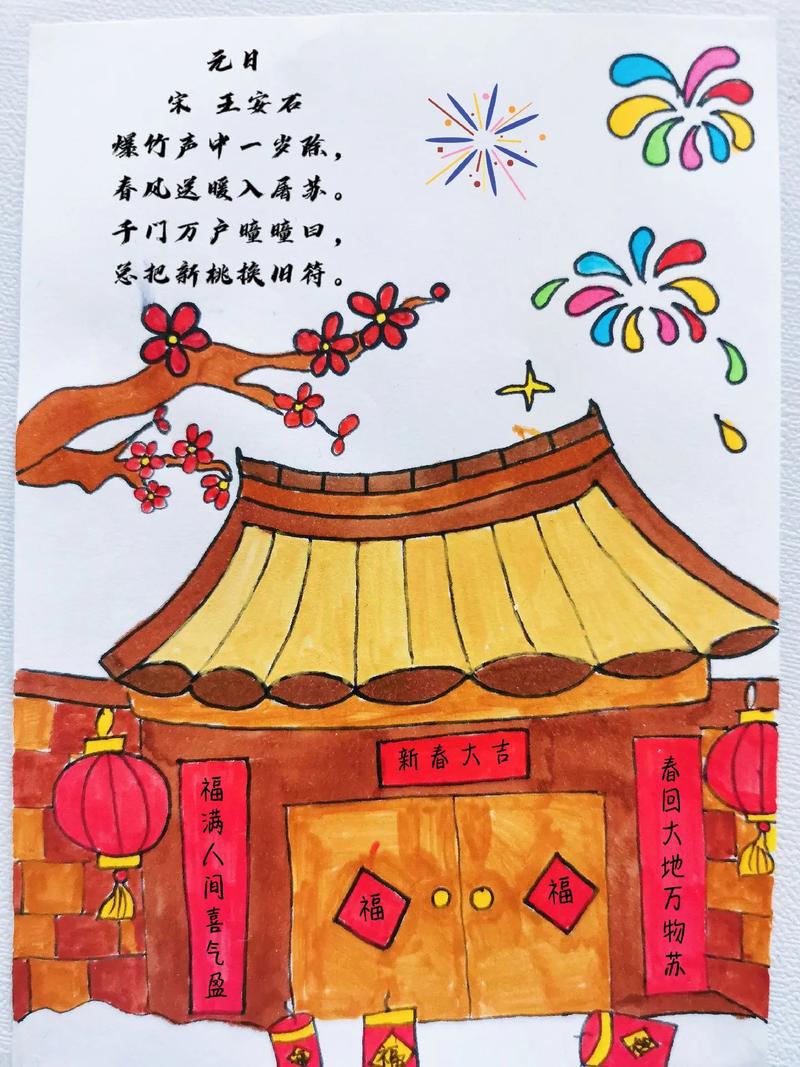 元日
宋 王安石
爆竹声中一岁除，
春风送暖入屠苏。
千门万户曈曈日，
总把新桃换旧符。
新春大吉
春回大地万物苏
福满人间喜气盈
福
福
福